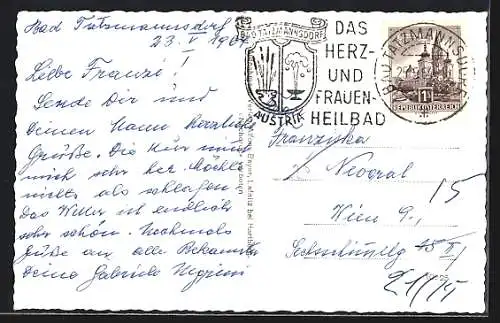 Bad Tatzmannsdorf
23. V 196
Liebe Franzi!
Sende Dir und
Deinen Mann herzliche
Grüße. Die Kur
mich sehr her. Möchte
nichts als schlafen.
Das Wetter ist endlich
sehr schön. Nochmals
Grüße an alle Bekannten
Deine Gabriele
BAD TATZMANNSDORF
AUSTRIA
DAS
HERZ-
UND
FRAUEN-
HEILBAD
BAD TATZMANNSDORF
REPUBLIK ÖSTERREICH
Franziska
15
Wien 9.,
21/15